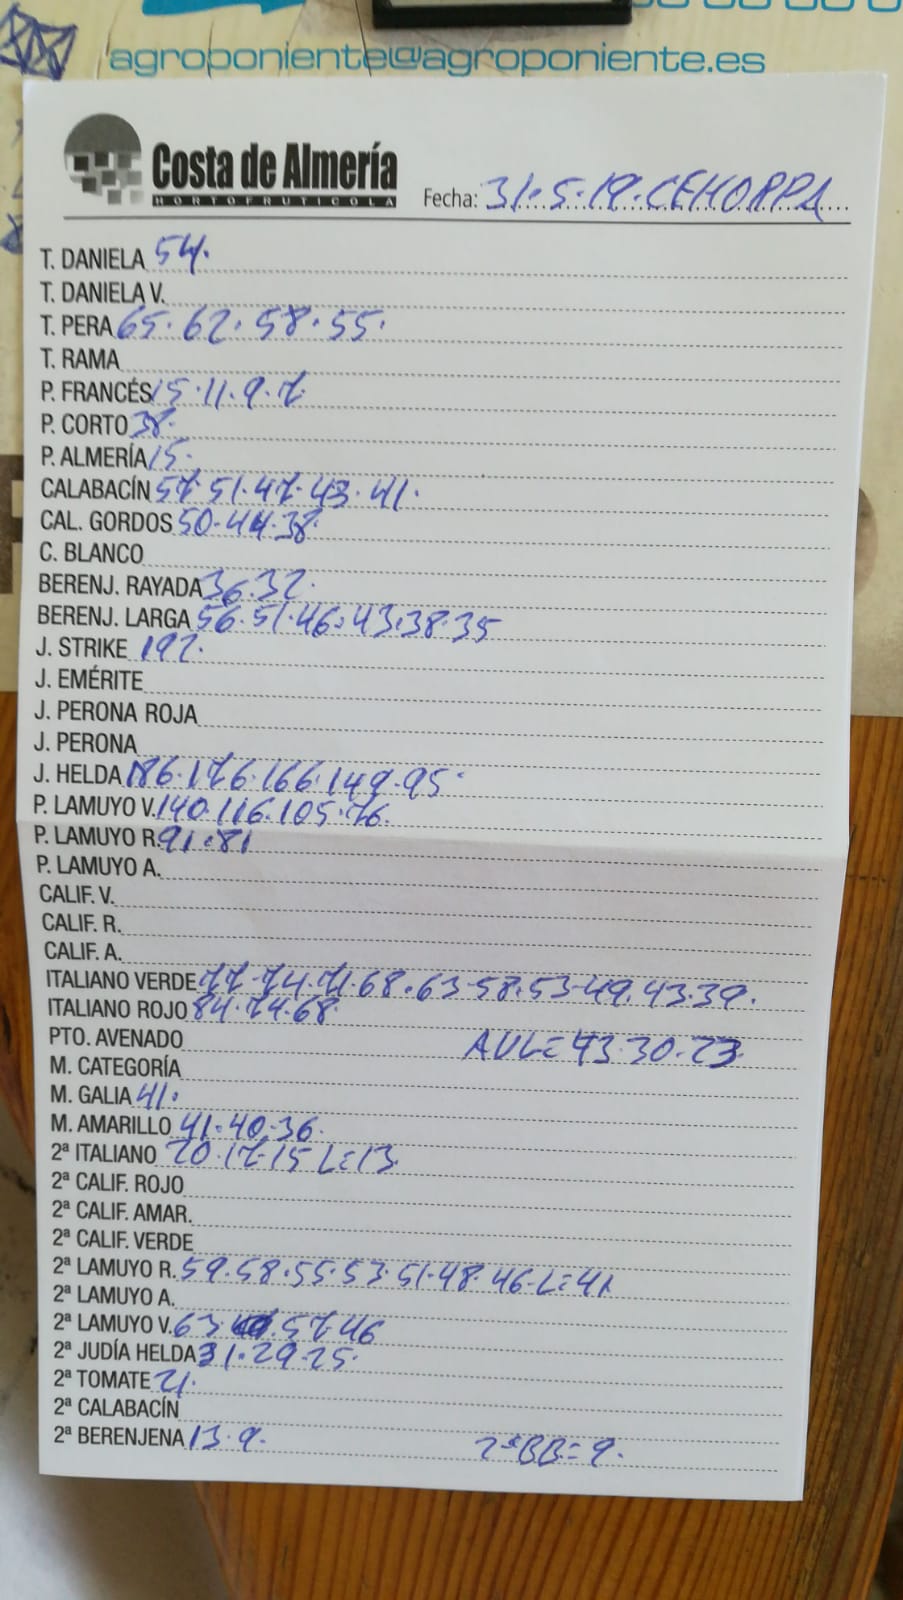 agroponiente@agroponiente.es
Costa de Almería
HORTOFRUTICOLA
Fecha: 31.5.19. CEHORPA
T. DANIELA 54.
T. DANIELA V.
T. PERA 65.62.58.55.
T. RAMA
P. FRANCÉS 15.11.9.7
P. CORTO 38.
P. ALMERÍA 15.
CALABACÍN 57.51.47.43.41.
CAL. GORDOS 50.44.38.
C. BLANCO
BERENJ. RAYADA 36.32.
BERENJ. LARGA 56.51.46.43.38.35
J. STRIKE 192.
J. EMÉRITE
J. PERONA ROJA
J. PERONA
J. HELDA 186.176.166.149.95.
P. LAMUYO V. 140.116.105.76.
P. LAMUYO R. 91.81
P. LAMUYO A.
CALIF. V.
CALIF. R.
CALIF. A.
ITALIANO VERDE 77.74.71.68.63.58.53.49.43.39.
ITALIANO ROJO 84.74.68.
PTO. AVENADO AVL= 43.30.23.
M. CATEGORÍA
M. GALIA 41.
M. AMARILLO 41.40.36.
2ª ITALIANO 20.17.15 L=13
2ª CALIF. ROJO
2ª CALIF. AMAR.
2ª CALIF. VERDE
2ª LAMUYO R. 59.58.55.53.51.48.46.L=41
2ª LAMUYO A.
2ª LAMUYO V. 63 57.46
2ª JUDÍA HELDA 31.29.25.
2ª TOMATE 21.
2ª CALABACÍN
2ª BERENJENA 13.9. 2ªBB=9.